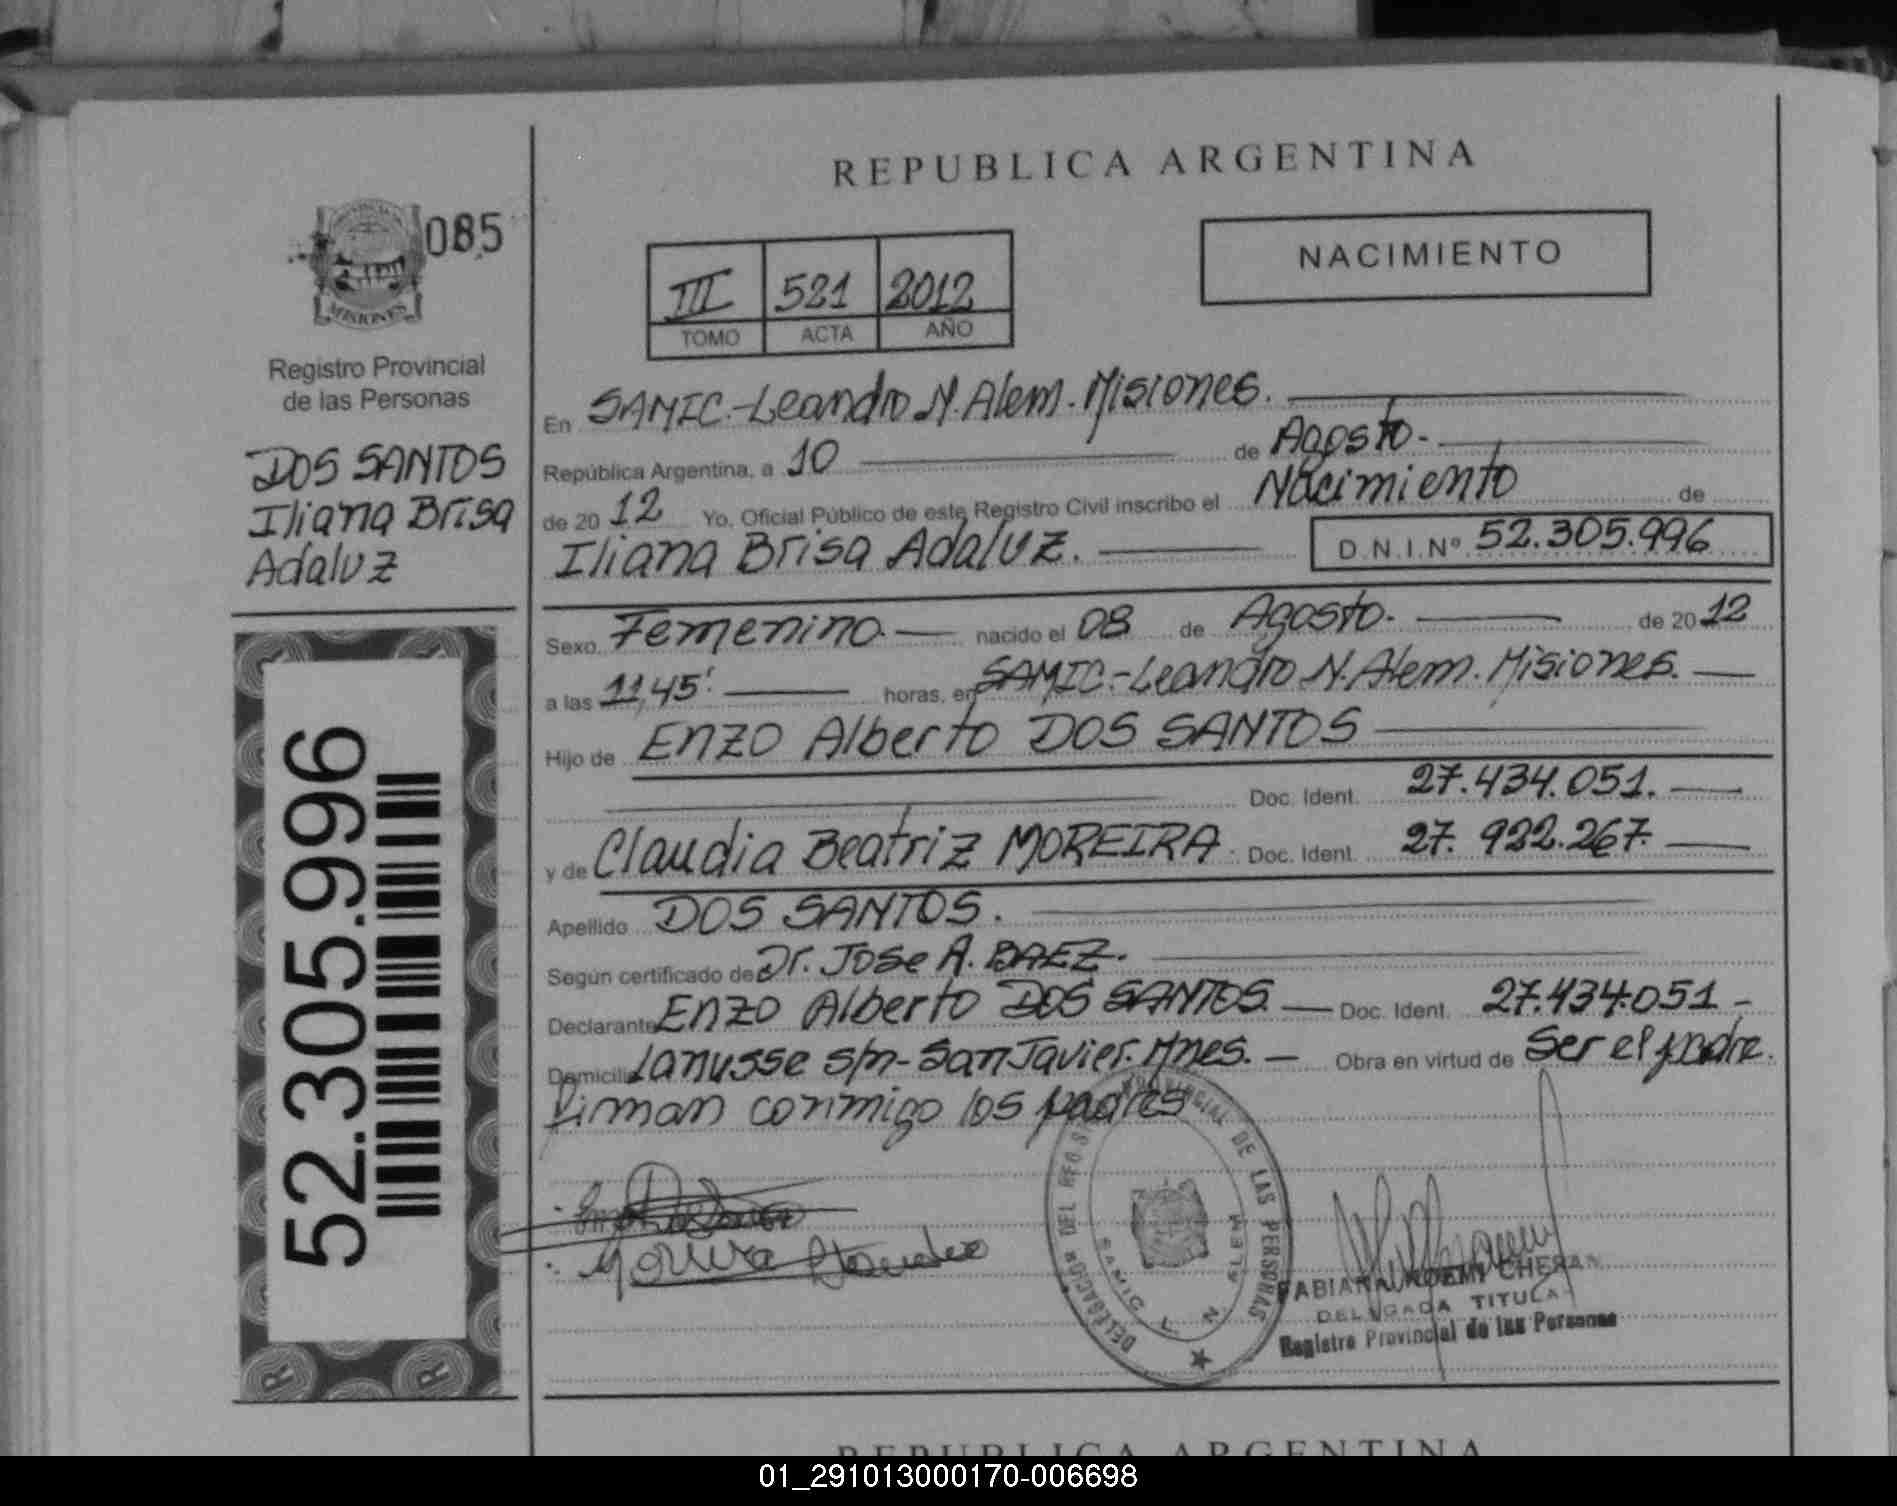 REPUBLICA ARGENTINA
085
MISIONES
NACIMIENTO
III 521 2012
TOMO ACTA AÑO
Registro Provincial
de las Personas
DOS SANTOS
Iliana Brisa
Adaluz
52.305.996
En SAMIC.-Leandro N. Alem. Misiones.
República Argentina, a 10 de Agosto.-
de 20 12 Yo, Oficial Público de este Registro Civil inscribo el Nacimiento de
Iliana Brisa Adaluz. D.N.I.Nº 52.305.996
Sexo Femenino.- nacido el 08 de Agosto.- de 20 12
a las 11,45' horas, en SAMIC.-Leandro N. Alem. Misiones.
Hijo de ENZO Alberto DOS SANTOS
Doc. Ident. 27.434.051.
y de Claudia Beatriz MOREIRA. Doc. Ident. 27.922.267.
Apellido DOS SANTOS.
Según certificado de Dr. Jose A. BAEZ.
Declarante ENZO Alberto DOS SANTOS. Doc. Ident. 27.434.051.-
Domicilio Lanusse s/n-San Javier. Mnes. Obra en virtud de Ser el padre.
Firman conmigo los padres
PROVINCIAL DE LAS PERSONAS
DELEGACION DEL
SAMIC L. N. ALEM
Moreira Claudia
FABIANA NOEMI
DELEGADA TITULAR
Registro Provincial de las Personas
REPUBLICA ARGENTINA
01_291013000170-006698